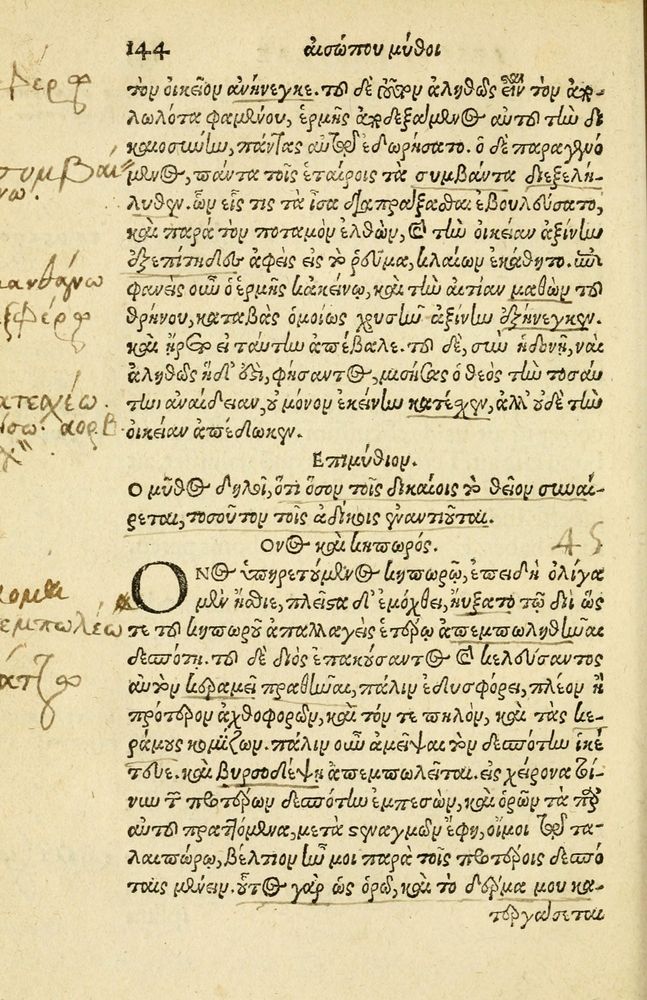 144 αἰσώπου μῦθοι
τὸν οἰκεῖον ἀνήνεγκε. τοῦ δὲ ταύτην ἀληθῶς εἶναι τὸν ἀπο-
λωλότα φαμένου, ἑρμῆς ἀποδεξάμενος αὐτοῦ τὴν δι
καιοσύνην, πάντας αὐτῷ ἐδωρήσατο. ὁ δὲ παραγενό
μενος, πάντα τοῖς ἑταίροις τὰ συμβάντα διεξελή-
λυθεν. ὧν εἷς τις τὰ ἶσα διαπράξασθαι ἐβουλεύσατο,
καὶ παρὰ τὸν ποταμὸν ἐλθὼν, καὶ τὴν οἰκείαν ἀξίνην
ἐξεπίτηδες ἀφεὶς εἰς τὸ ῥεῦμα, κλαίων ἐκάθητο. ἐπι
φανεὶς οὖν ὁ ἑρμῆς κἀκείνῳ, καὶ τὴν αἰτίαν μαθὼν τοῦ
θρήνου, καταβὰς ὁμοίως χρυσῆν ἀξίνην ἐξήνεγκεν.
καὶ ἤρετο εἰ ταύτην ἀπέβαλε. τοῦ δὲ, σὺν ἡδονῇ, ναὶ
ἀληθῶς ἥδ' ἐστὶ, φήσαντος, μισήσας ὁ θεὸς τὴν τοσαύ
την ἀναίδειαν, οὐ μόνον ἐκείνην κατέσχεν, ἀλλ' οὐδὲ τὴν
οἰκείαν ἀπέδωκεν.
Επιμύθιον.
Ο μῦθος δηλοῖ, ὅτι ὅσον τοῖς δικαίοις τὸ θεῖον συναί-
ρεται, τοσοῦτον τοῖς ἀδίκοις ἐναντιοῦται.
Ονος καὶ κηπωρός. 45
ΟΝος ὑπηρετούμενος κηπωρῷ, ἐπειδὴ ὀλίγα
μὲν ἤσθιε, πλεῖστα δ' ἐμόχθει, ηὔξατο τῷ διῒ ὥς
τε τοῦ κηπωροῦ ἀπαλλαγεὶς ἑτέρῳ ἀπεμποληθῆναι
δεσπότῃ. τοῦ δὲ διὸς ἐπακούσαντος καὶ κελεύσαντος
αὐτὸν κεραμεῖ πραθῆναι, πάλιν ἐδυσφόρει, πλέον ἢ
πρότερον ἀχθοφορῶν, καὶ τόν τε πηλὸν, καὶ τὰς κε-
ράμους κομίζων. πάλιν οὖν ἀμεῖψαι τὸν δεσπότην ἱκέ
τευε. καὶ βυρσοδέψῃ ἀπεμπωλεῖται. εἰς χείρονα τοί-
νυν τῶν προτέρων δεσπότην ἐμπεσὼν, καὶ ὁρῶν τὰ παρ'
αὐτοῦ πραττόμενα, μετὰ στεναγμῶν ἔφη, οἴμοι τῷ τα-
λαιπώρῳ, βέλτιον ἦν μοι παρὰ τοῖς προτέροις δεσπό
ταις μένειν. οὗτος γὰρ ὡς ὁρῶ, καὶ τὸ δέρμα μου κα-
τεργάσεται